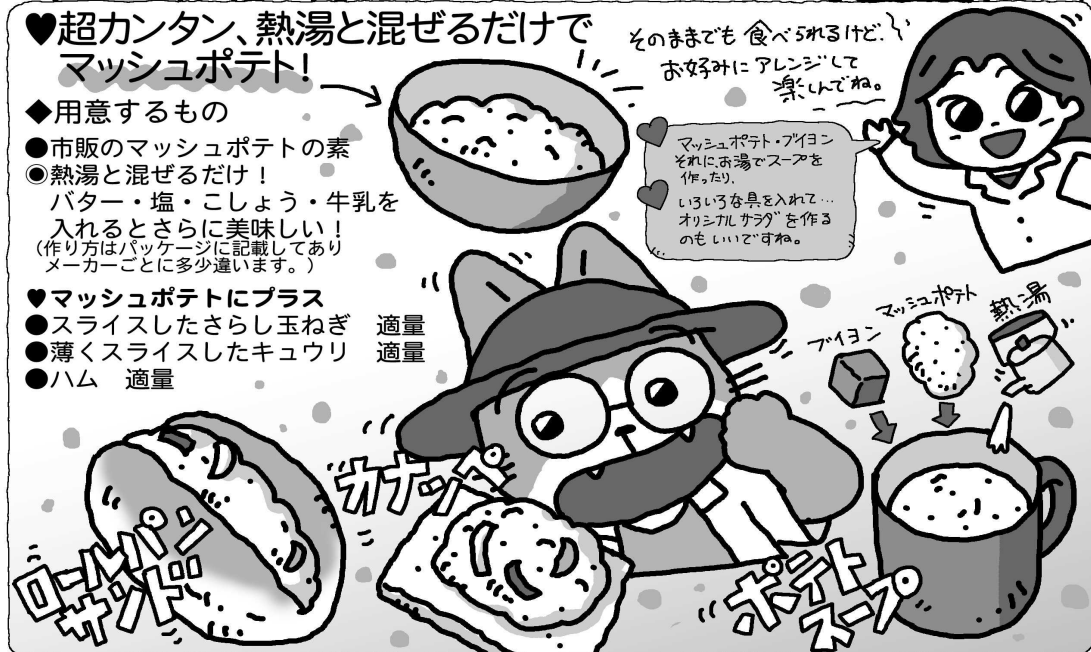 ♥超カンタン、熱湯と混ぜるだけで
マッシュポテト!
◆用意するもの
●市販のマッシュポテトの素
◉熱湯と混ぜるだけ!
バター・塩・こしょう・牛乳を
入れるとさらに美味しい!
(作り方はパッケージに記載してあり
メーカーごとに多少違います。)
♥マッシュポテトにプラス
●スライスしたさらし玉ねぎ 適量
●薄くスライスしたキュウリ 適量
●ハム 適量
そのままでも食べられるけど、
お好みにアレンジして
楽しんでね。
マッシュポテト・ブイヨン
それに、お湯でスープを
作ったり、
いろいろな具を入れて…
オリジナルサラダを作る
のもいいですね。
ブイヨン
マッシュポテト
熱湯
ロールパン
サンド
カナッペ
ポテト
スープ